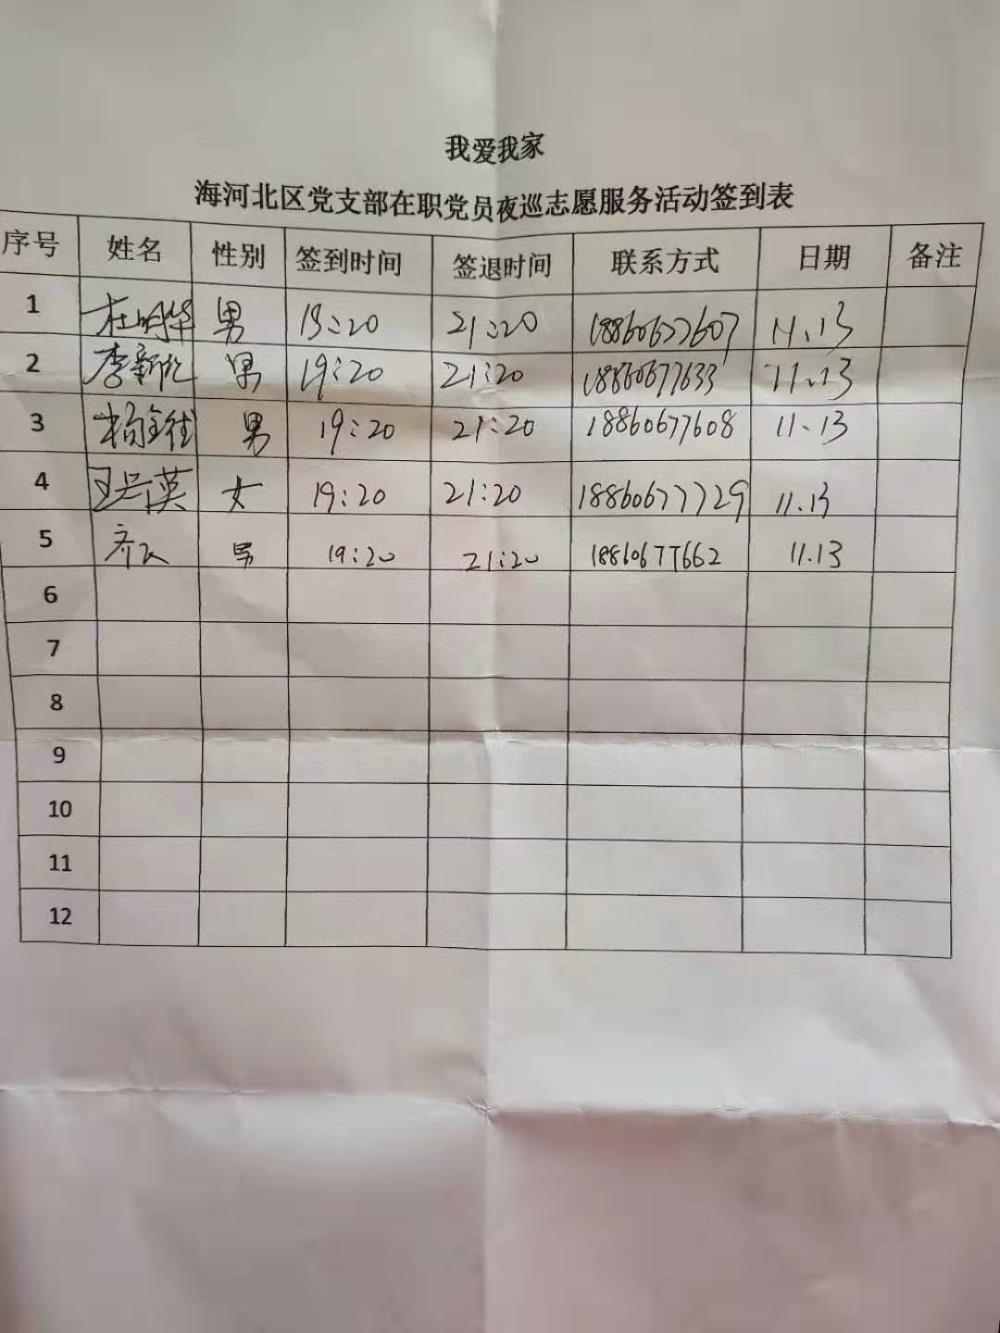 我爱我家
海河北区党支部在职党员夜巡志愿服务活动签到表
序号 姓名 性别 签到时间 签退时间 联系方式 日期 备注
1 杜明华 男 19:20 21:20 18860677607 11.13
2 李新 男 19:20 21:20 18860677633 11.13
3 杨 男 19:20 21:20 18860677608 11.13
4 王 英 女 19:20 21:20 18860677729 11.13
5 齐 男 19:20 21:20 18860677662 11.13
6
7
8
9
10
11
12